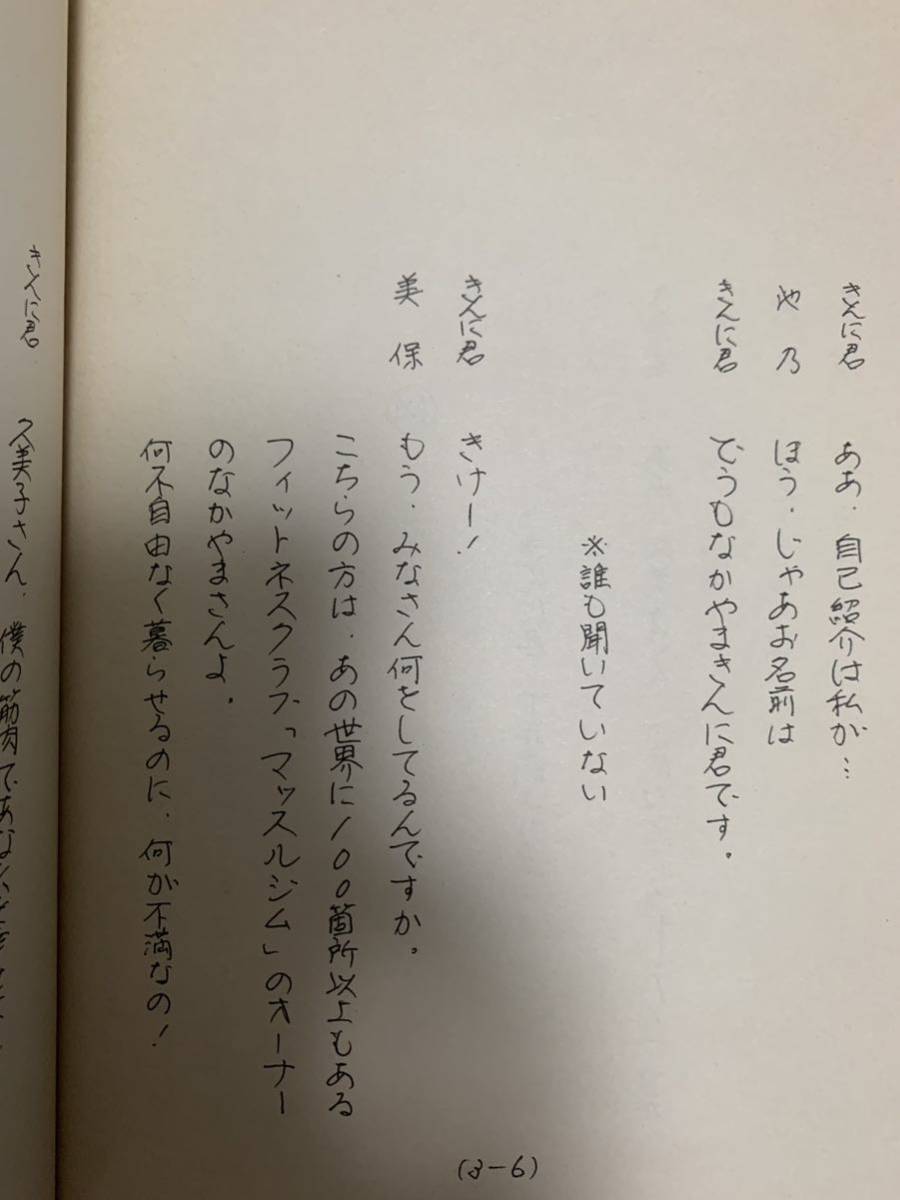 きんに君　ああ．自己紹介は私が…
池乃　ほう．じゃあお名前は
きんに君　どうもなかやまきんに君です。
※誰も聞いていない
きんに君　きけー！
美保　もう．みなさん何をしてるんですか。
こちらの方は．あの世界に１００箇所以上もある
フィットネスクラブ「マッスルジム」のオーナー
のなかやまさんよ。
何不自由なく暮らせるのに、何が不満なの！
(3-6)
きんに君　久美子さん．僕の筋肉であな